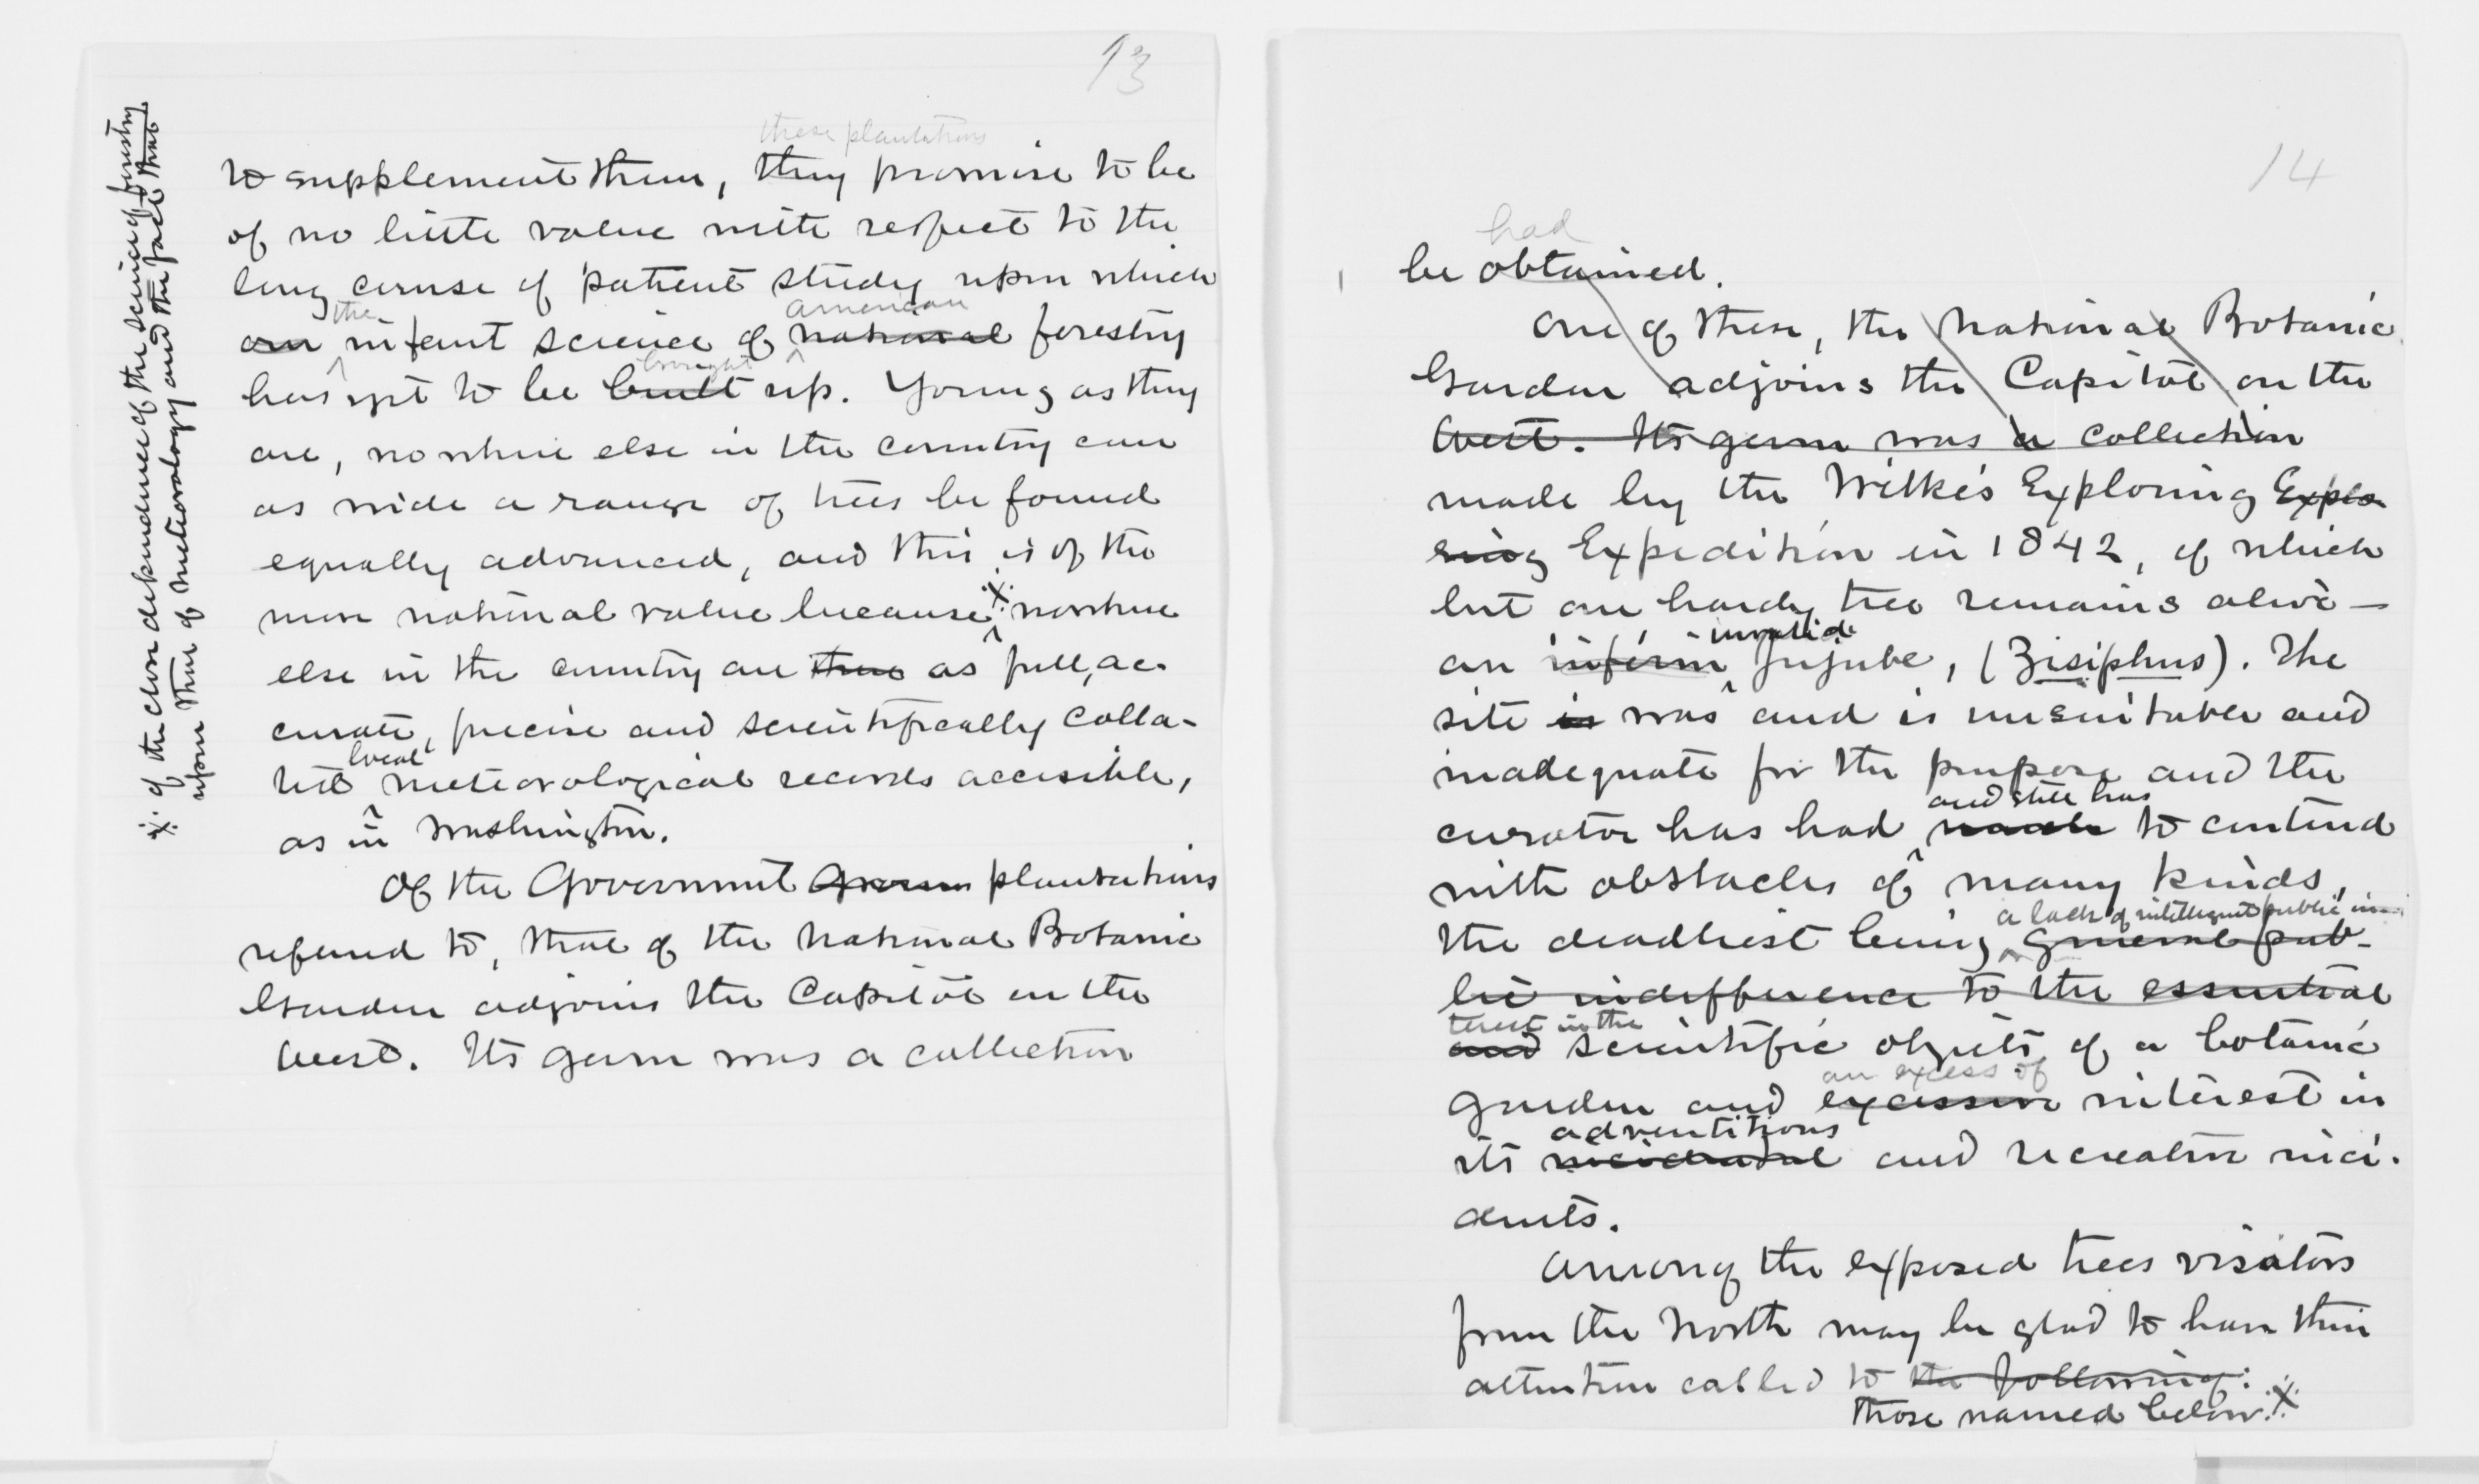 13
these plantations
to supplement them, they promise to be
of no little value with respect to the
long course of patient study upon which
the american
our infant science of national forestry
brought
has yet to be built up. Young as they
are, nowhere else in the country can
as wide a range of trees be found
equally advanced, and this is of the
more national value because ※ nowhere
else in the country are these as full, ac-
curate, precise and scientifically colla-
local
ted meteorological records accessible,
as in Washington.
Of the Government grown plantations
referred to, that of the National Botanic
Garden adjoins the Capitol on the
West. Its germ was a collection
※ of the close dependence of the science of forestry
upon that of meteorology and the fact that
14
had
be obtained.
One of these, the National Botanic
Garden adjoins the Capitol on the
West. Its germ was a collection
made by the Wilkes Exploring Explo
ring Expedition in 1842, of which
but one hardy tree remains alive —
invalid
an infirm Jujube, (Zisiphus). The
site is was and is unsuitable and
inadequate for the purpose and the
and still has
curator has had to contend
with obstacles of many kinds,
a lack of intelligent public in-
the deadliest being general pub-
lic indifference to the essential
terest in the
and scientific objects of a botanic
an excess of
garden and excessive interest in
adventitious
its incidental and recreative inci-
dents.
Among the exposed trees visitors
from the North may be glad to have their
attention called to the following:
those named below. ※